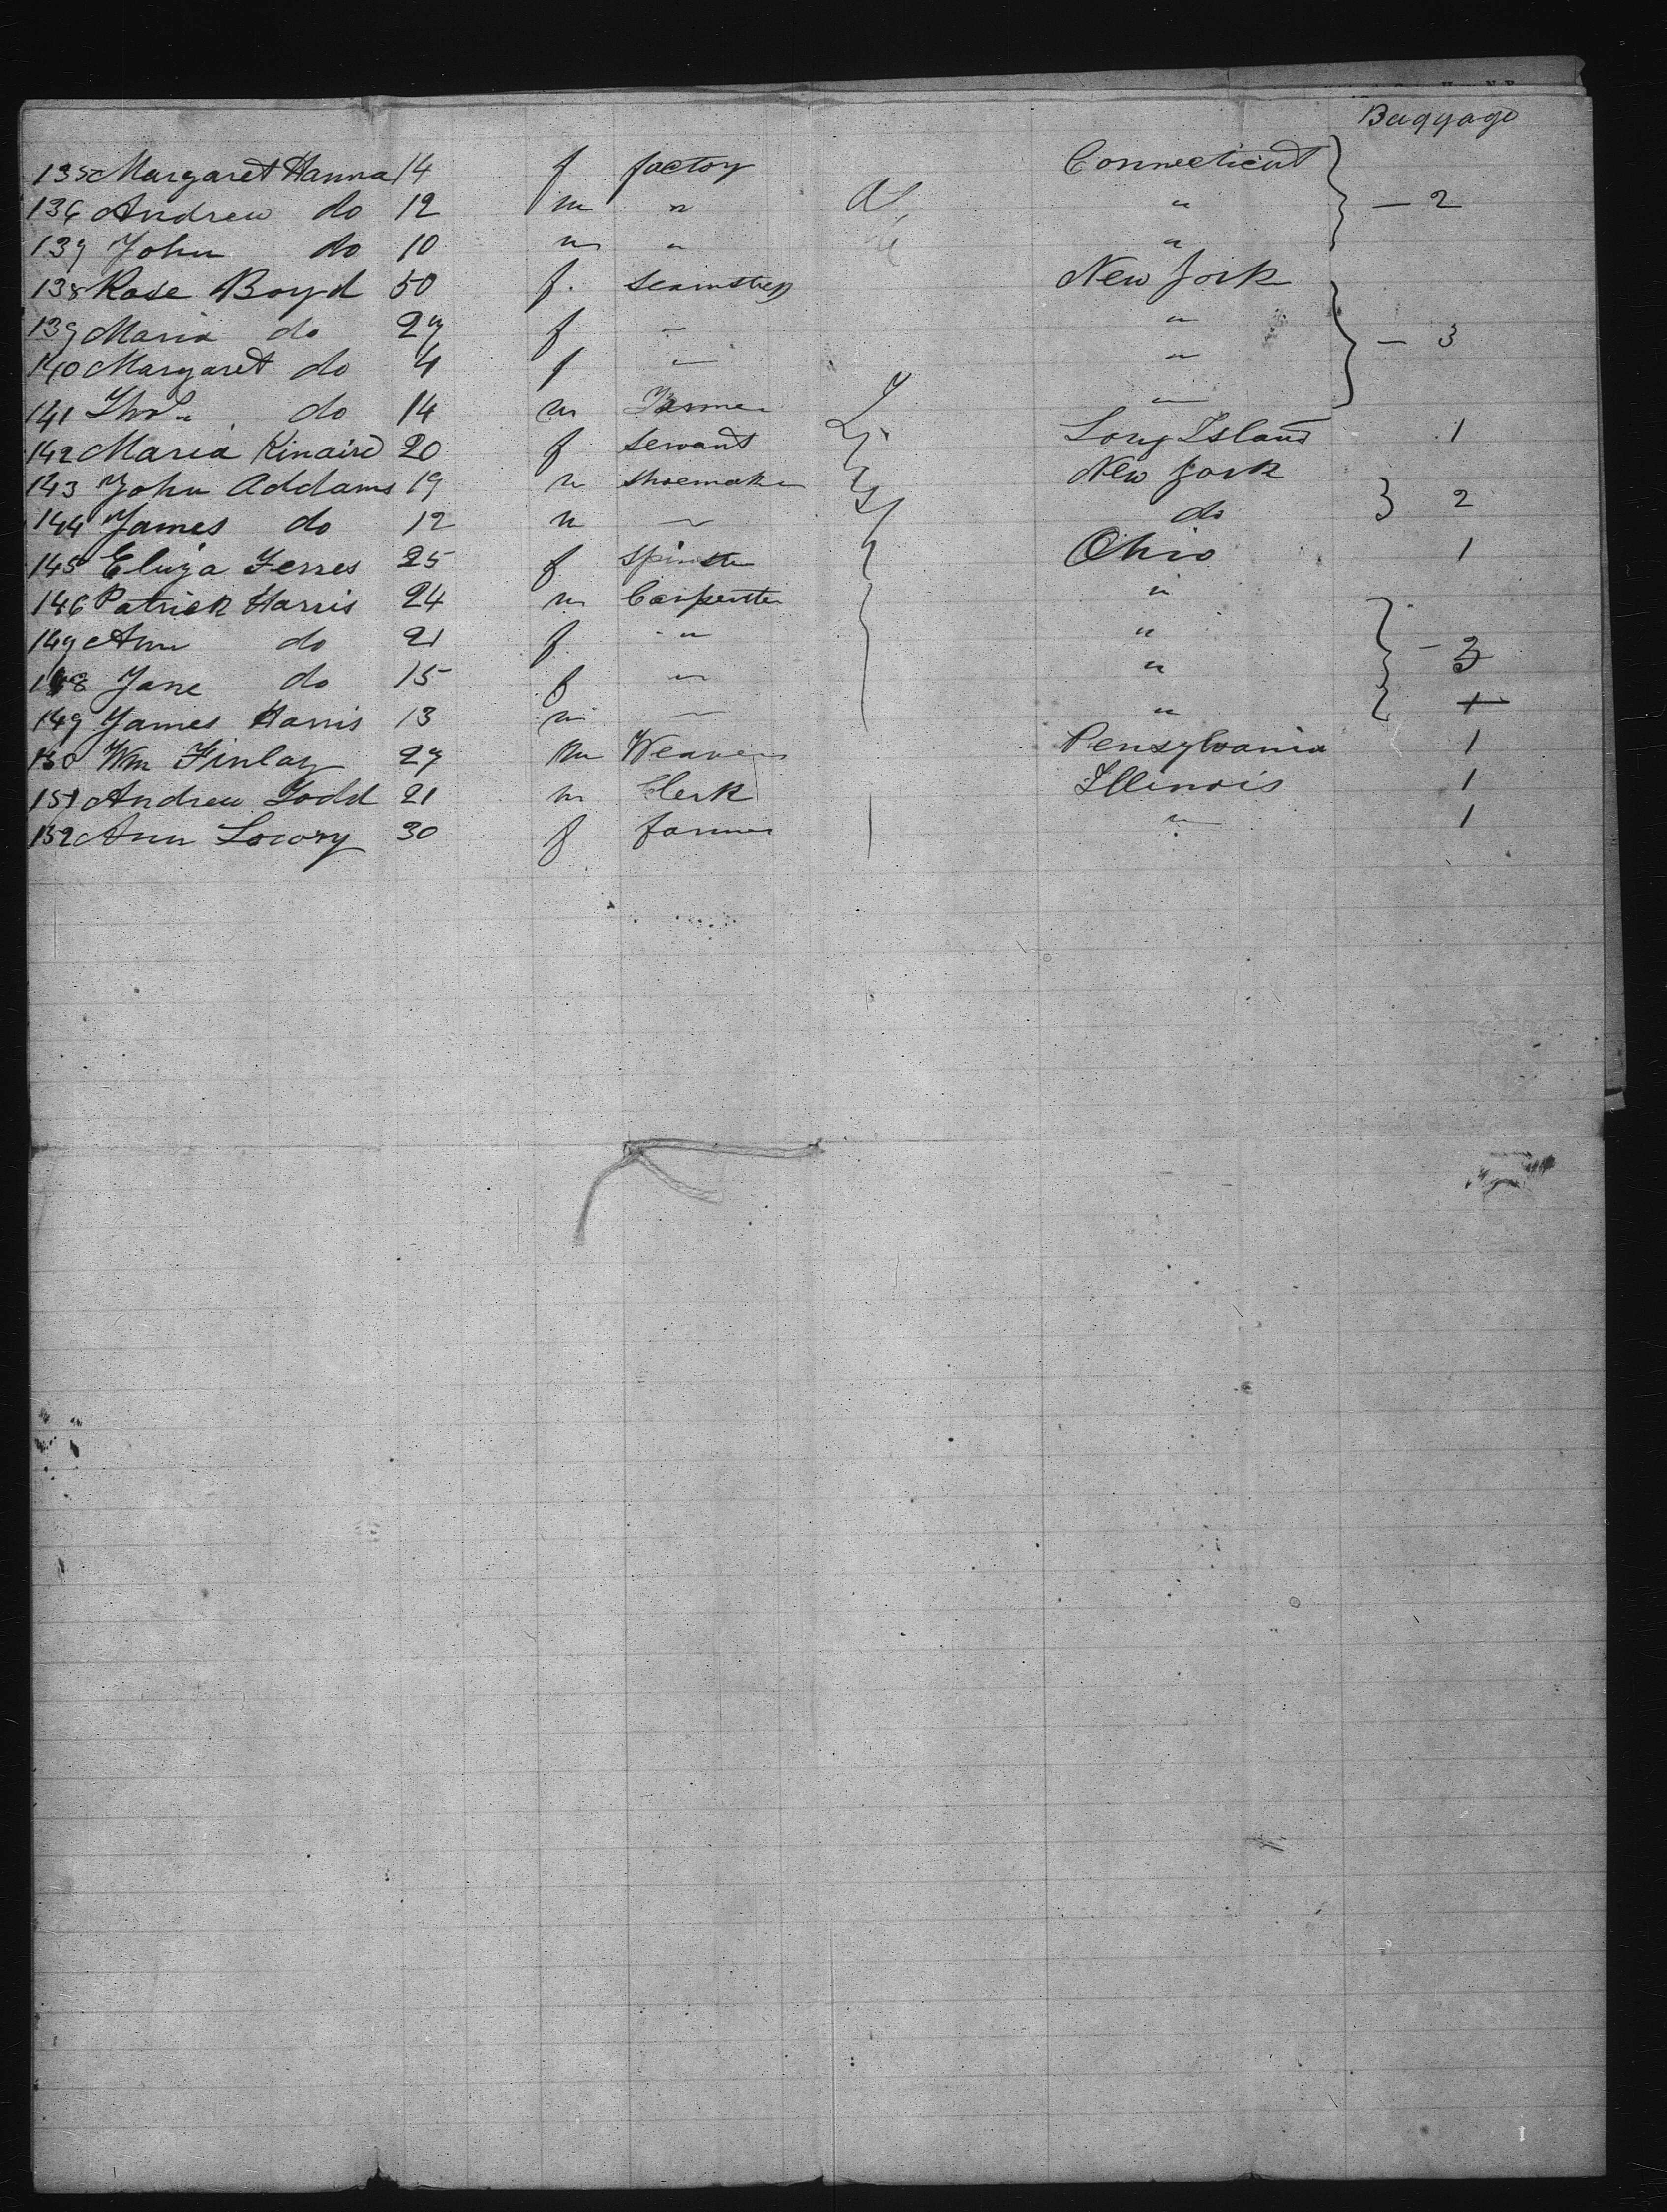 Baggage
135 Margaret Hanna 14 f factory Connecticut
136 Andrew do 12 m " " — 2
137 John do 10 m " "
138 Rose Boyd 50 f. Seamstress New York
139 Maria do 27 f " " — 3
140 Margaret do 4 f " "
141 do 14 m Farmer "
142 Maria Kinaird 20 f servant Long Island 1
143 John Addams 19 m shoemaker New York
144 James do 12 m " do 2
145 Eliza Ferres 25 f Spinster Ohio 1
146 Patrick Harris 24 m Carpenter "
147 Ann do 21 f " " — 3
148 Jane do 15 f " "
149 James Harris 13 m " " 1
150 Wm Finlay 27 m Weaver Pensylvania 1
151 Andrew Todd 21 m Clerk Illinois 1
152 Ann Lowry 30 f farmer " 1